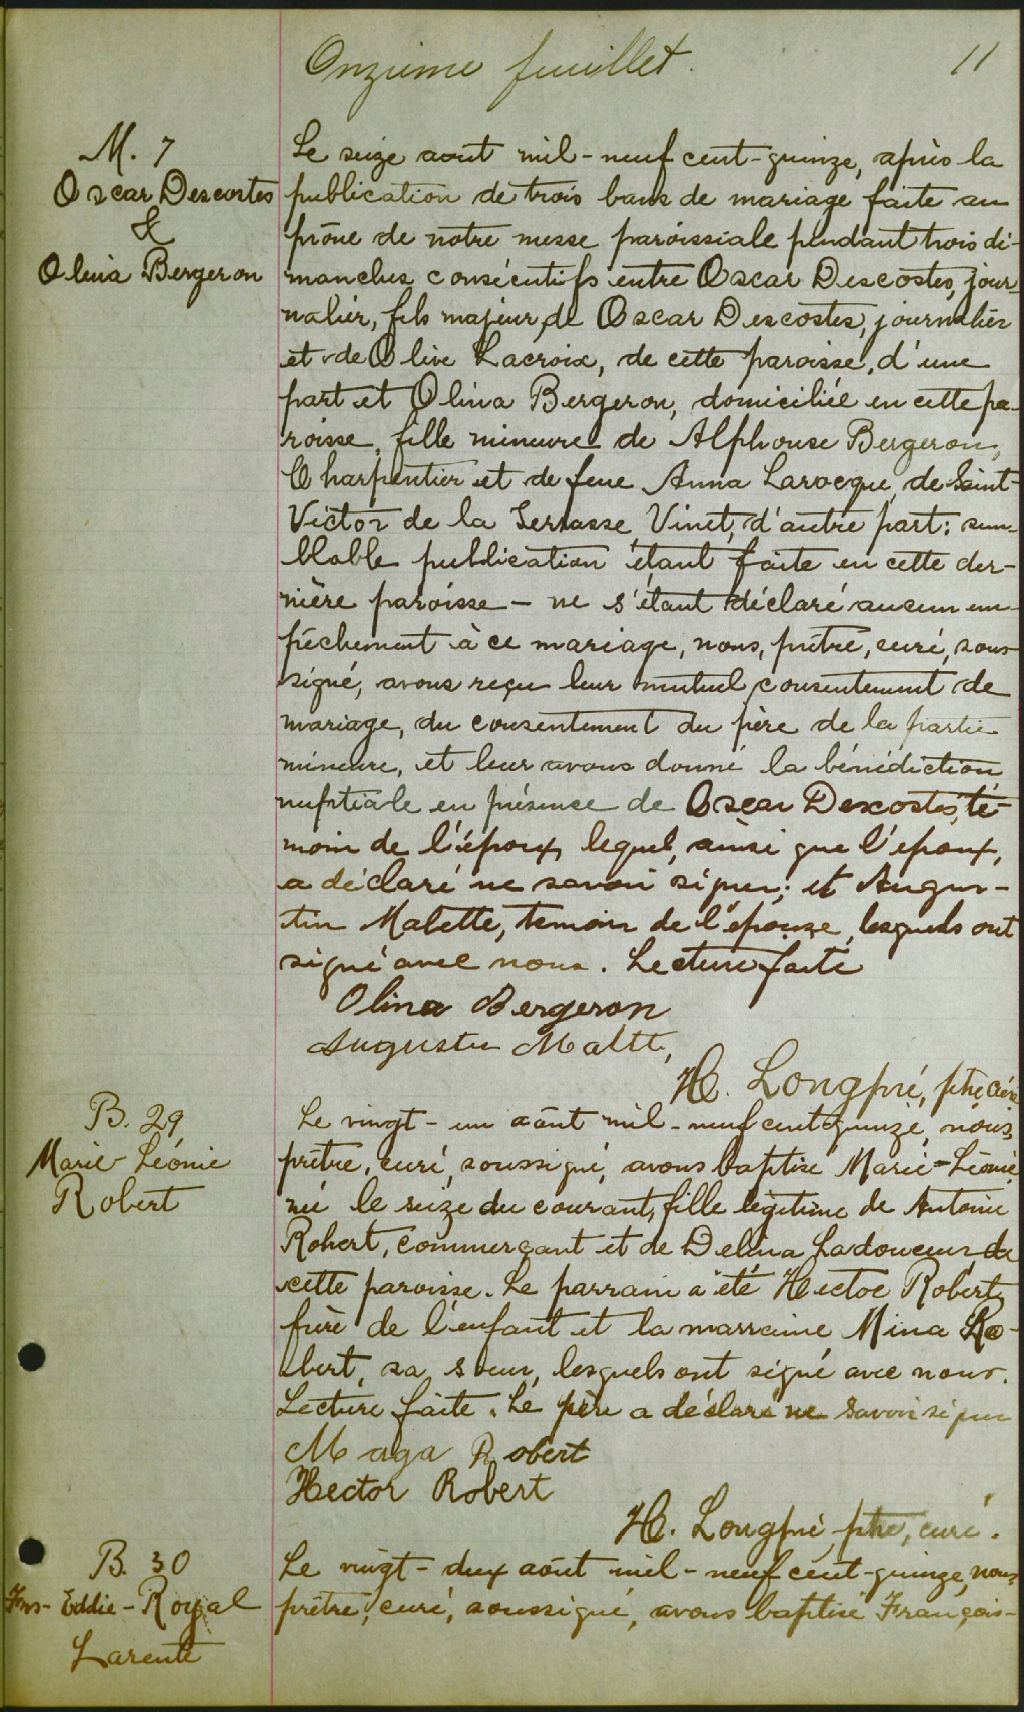 Onzième feuillet. 11
M. 7
Oscar Descostes
&
Olina Bergeron
Le seize août mil-neuf cent-quinze, après la
publication de trois bans de mariage faite au
prône de notre messe paroissiale pendant trois di-
manches consécutifs entre Oscar Descostes, jour-
nalier, fils majeur de Oscar Descostes, journalier
et de Olive Lacroix, de cette paroisse, d'une
part et Olina Bergeron, domiciliée en cette pa-
roisse, fille mineure de Alphonse Bergeron,
Charpentier et de feue Anna Larocque, de Saint-
Victor de la Terrasse Vinet, d'autre part; sem-
blable publication étant faite en cette der-
nière paroisse — ne s'étant déclaré aucun em-
pêchement à ce mariage, nous, prêtre, curé, sous-
signé, avons reçu leur mutuel consentement de
mariage, du consentement du père de la partie
mineure, et leur avons donné la bénédiction
nuptiale en présence de Oscar Descostes, té-
moin de l'époux, lequel, ainsi que l'époux,
a déclaré ne savoir signer; et Augus-
tin Malette, temoin de l'épouse, lesquels ont
signé avec nous. Lecture faite
Olina Bergeron
Augustin Maltt,
H. Longpré, ptre, curé
B. 29
Marie-Léonie
Robert
Le vingt-un août mil-neuf cent quinze, nous,
prêtre, curé, soussigné, avons baptisé Marie-Léonie,
née le seize du courant, fille légitime de Antoine
Robert, commerçant et de Delina Ladouceur de
cette paroisse. Le parrain a été Hector Robert,
frère de l'enfant et la marraine Mina Ro-
bert, sa sœur, lesquels ont signé avec nous.
Lecture faite. Le père a déclaré ne savoir signer
Maga Robert
Hector Robert
H. Longpré, ptre, curé.
B. 30
Frs-Eddie-Royal
Larente
Le vingt-deux août mil-neuf cent-quinze, nous,
prêtre, curé, soussigné, avons baptisé François-